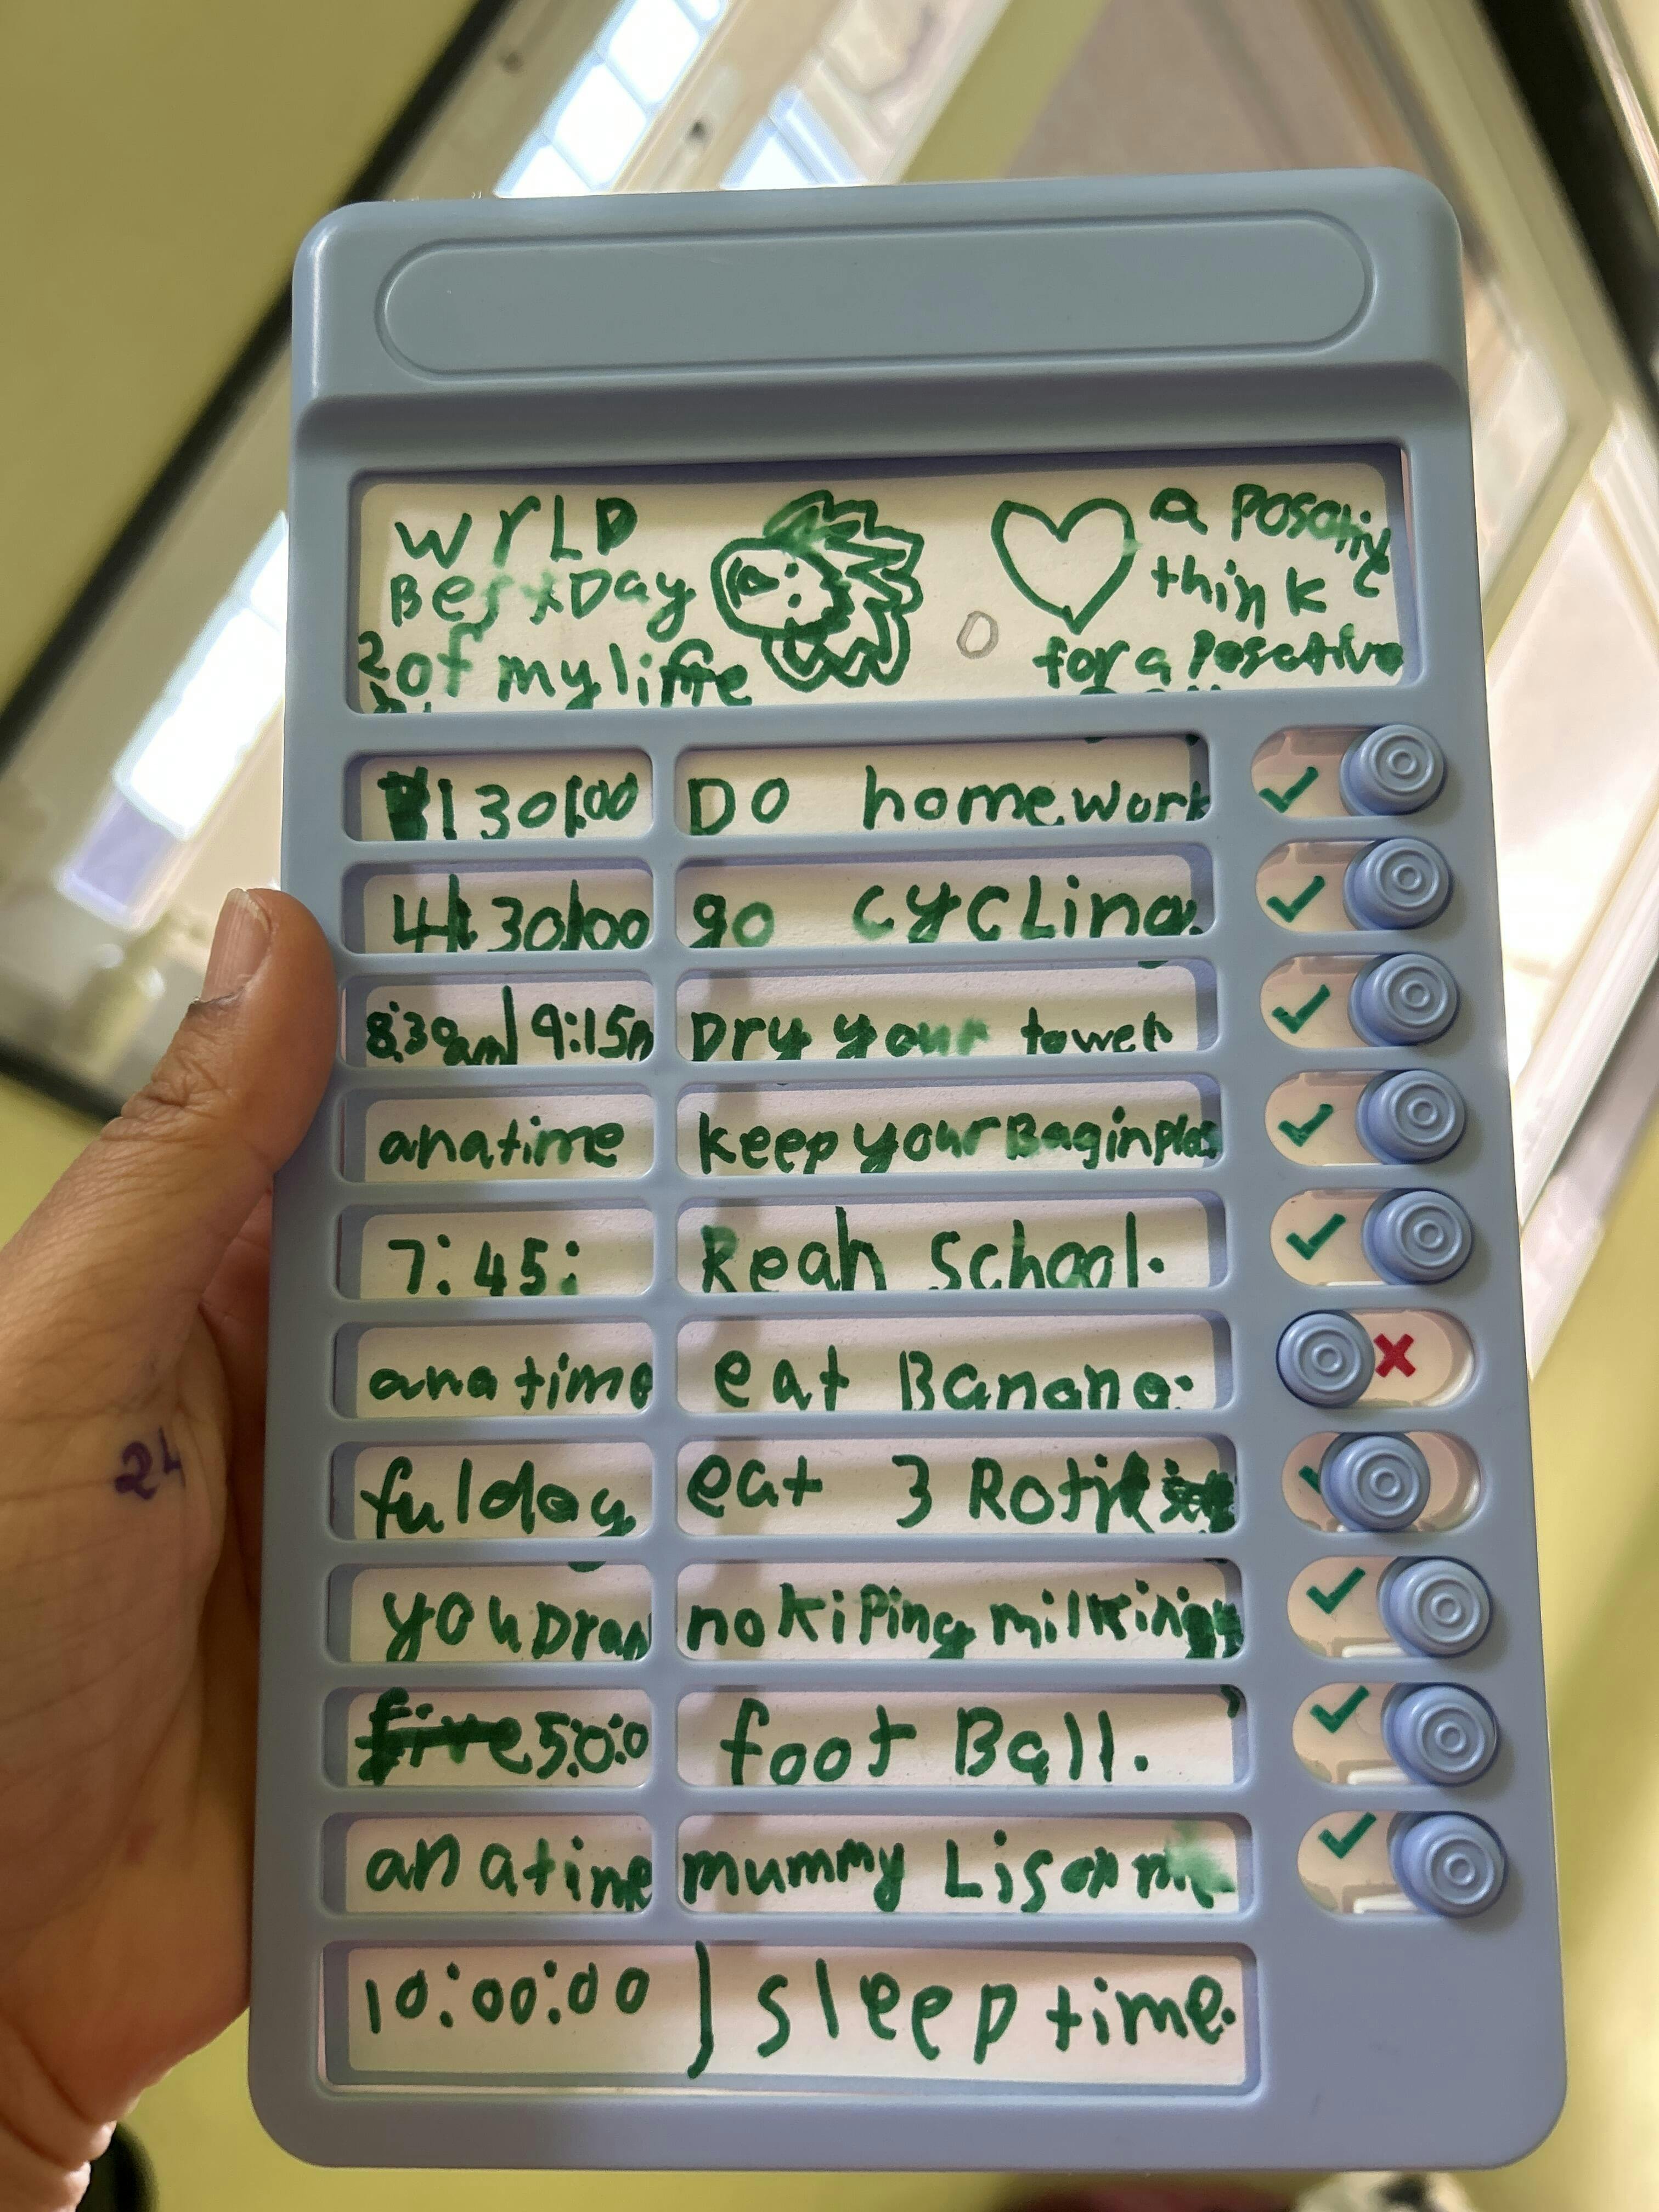 wrLD
BestDay
of my liffe
a Posative
think
for a Posetive
130:00 DO homework
4:30:00 go cycLing
8:30am 9:15 Dry your towel
anatime keep your Bag in place
7:45: Reah School.
anatime eat Banana.
fulday eat 3 Roti
you Dran no kiping milk in
5:0:0 foot Ball.
an atime mummy Lis on me
10:00:00 sleep time.
24